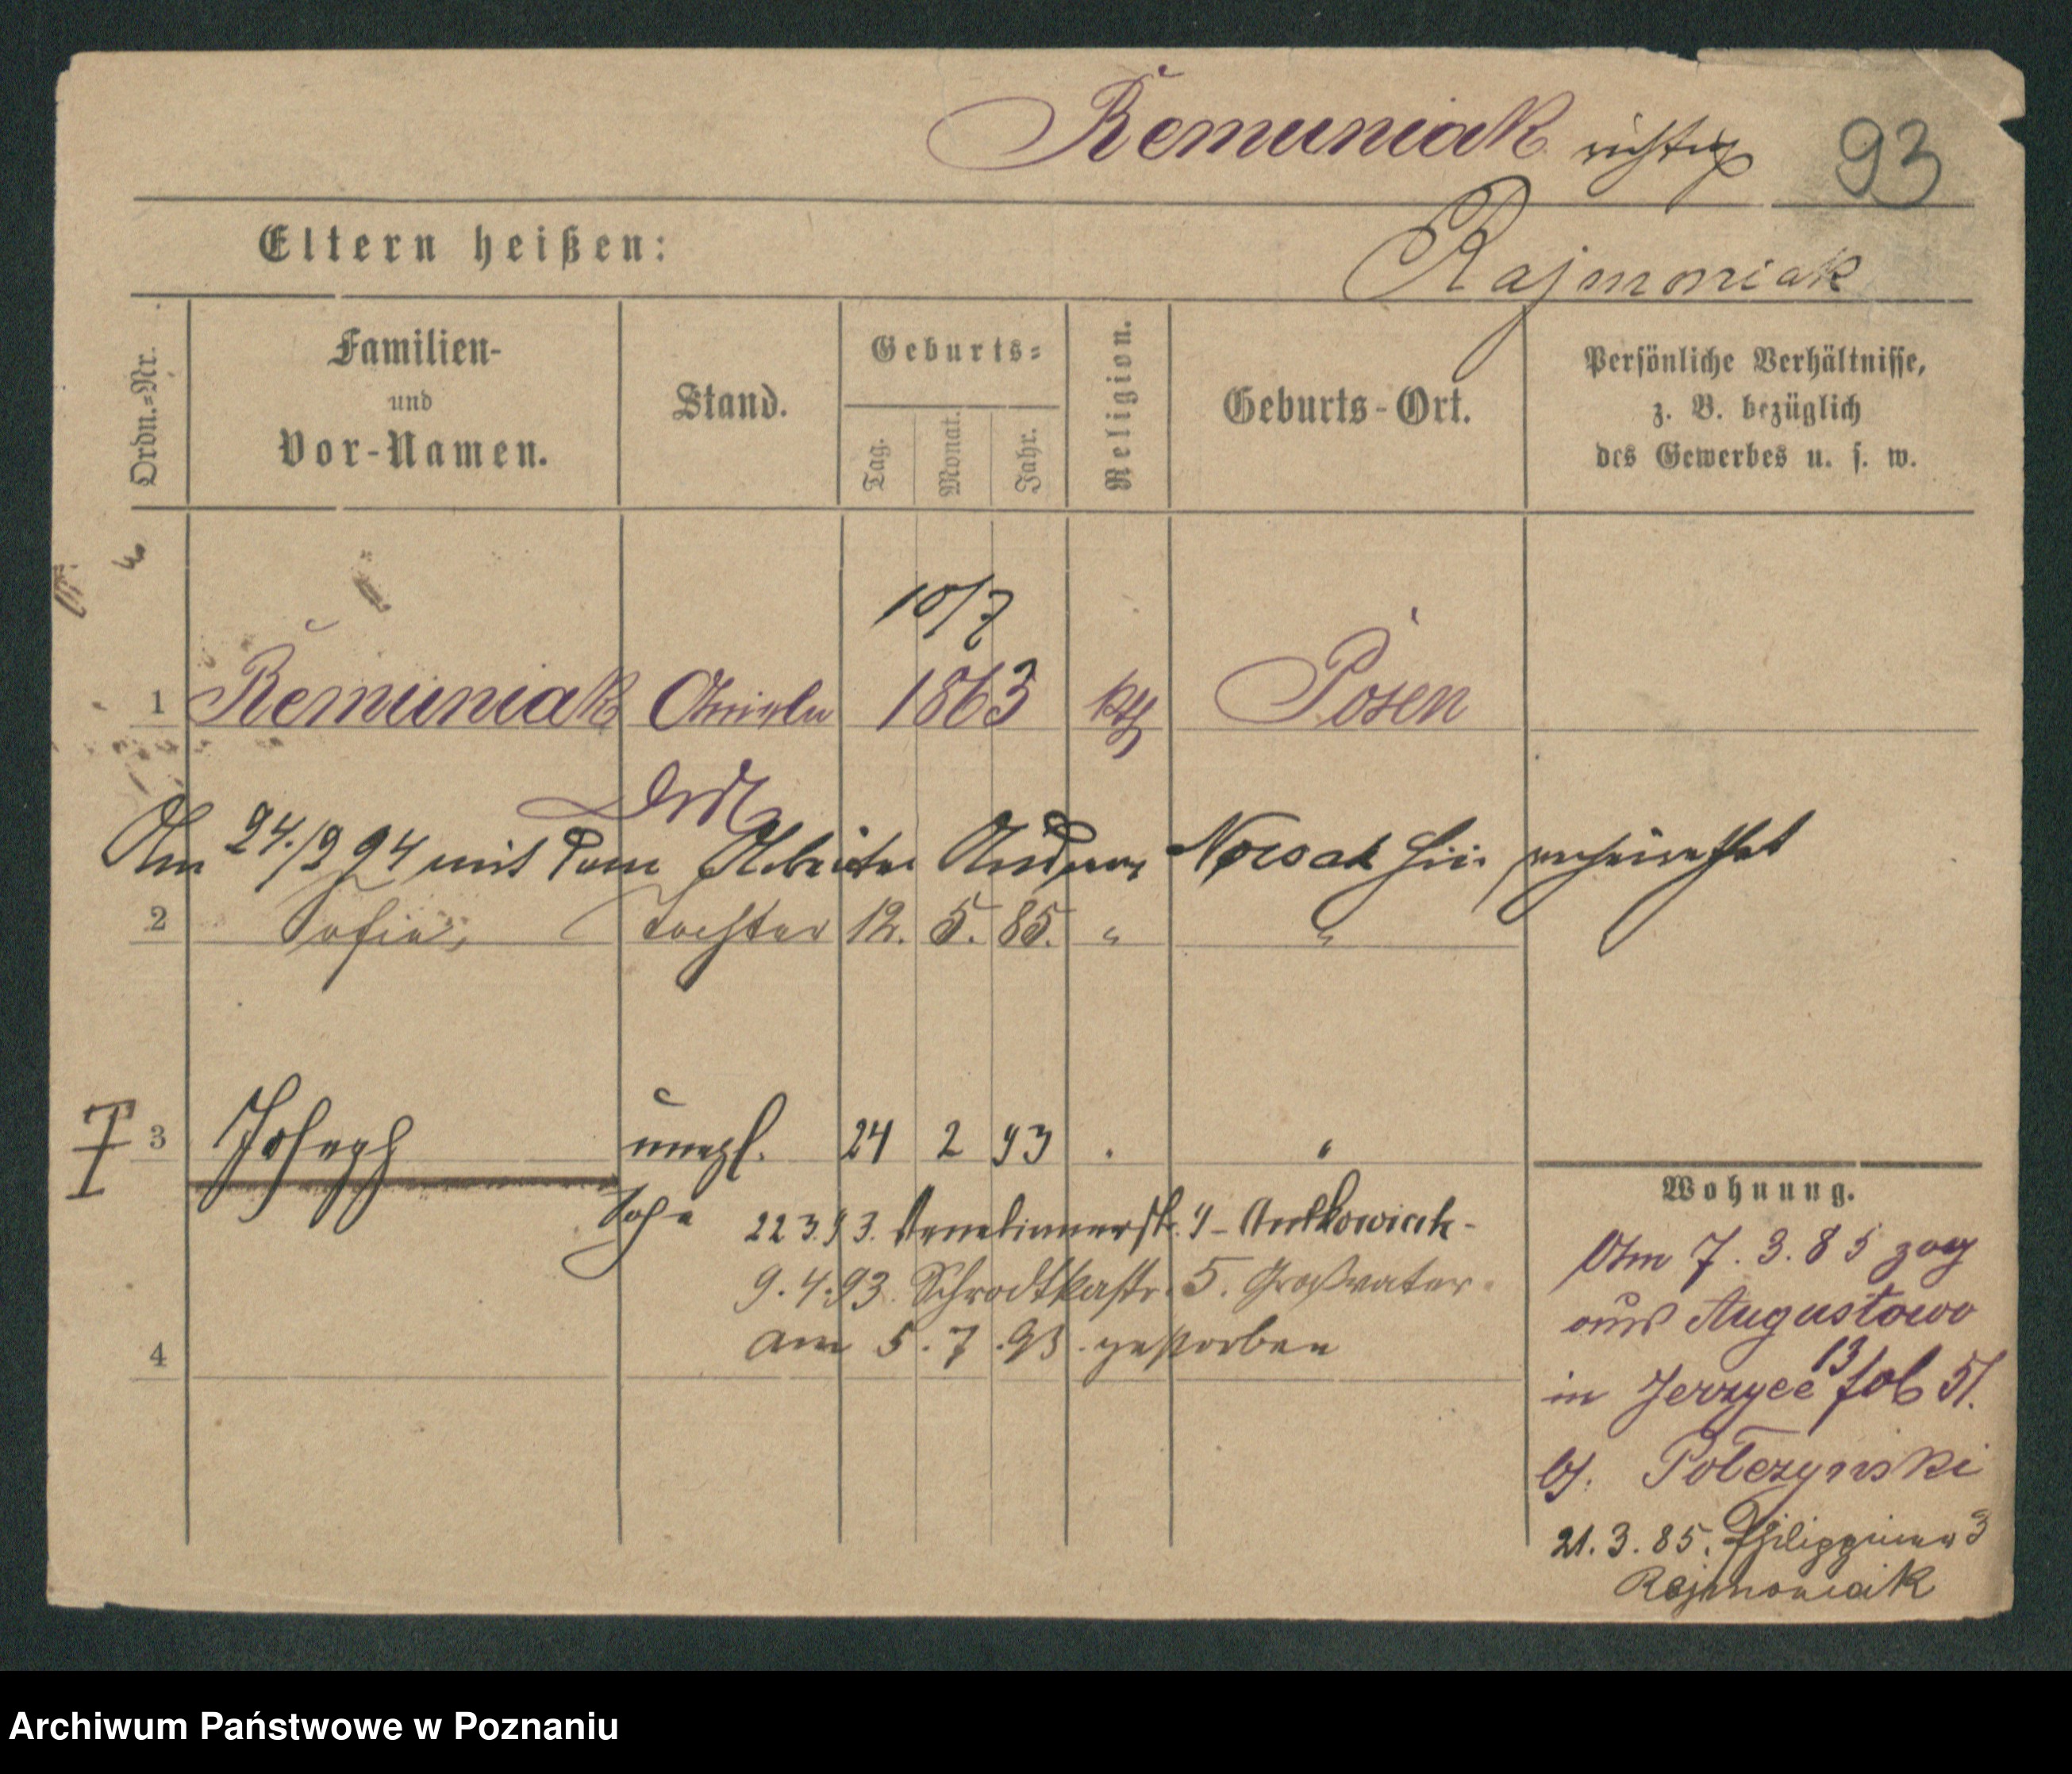 Remuniak richtig 93
Rajmoniak
Eltern heißen:
Ordn.=Nr.
Familien-
und
Vor-Namen.
Stand.
Geburts=
Tag.
Monat.
Jahr.
Religion.
Geburts-Ort.
Persönliche Verhältnisse,
z. B. bezüglich
des Gewerbes u. s. w.
10/7
1 Remuniak 1863 kth Posen
Am 24./2 94 mit dem Arbeiter Andreas Nowak hier verheirathet
2 Sofia, Tochter 12. 5. 85. " "
3 Joseph unehl. 24 2 93 " "
Sohn 22 3. 93. Venetianerstr. 9 - Antkowiak -
9. 4. 93. Schrodkastr. 5. Großvater.
am 5. 7. 93. gestorben
4
Wohnung.
Am 7. 3. 85 zog
aus Augustowo
in Jerzyce 13/ 51.
bj.
21. 3. 85. Philippinen 3
Rajmoniak
Archiwum Państwowe w Poznaniu